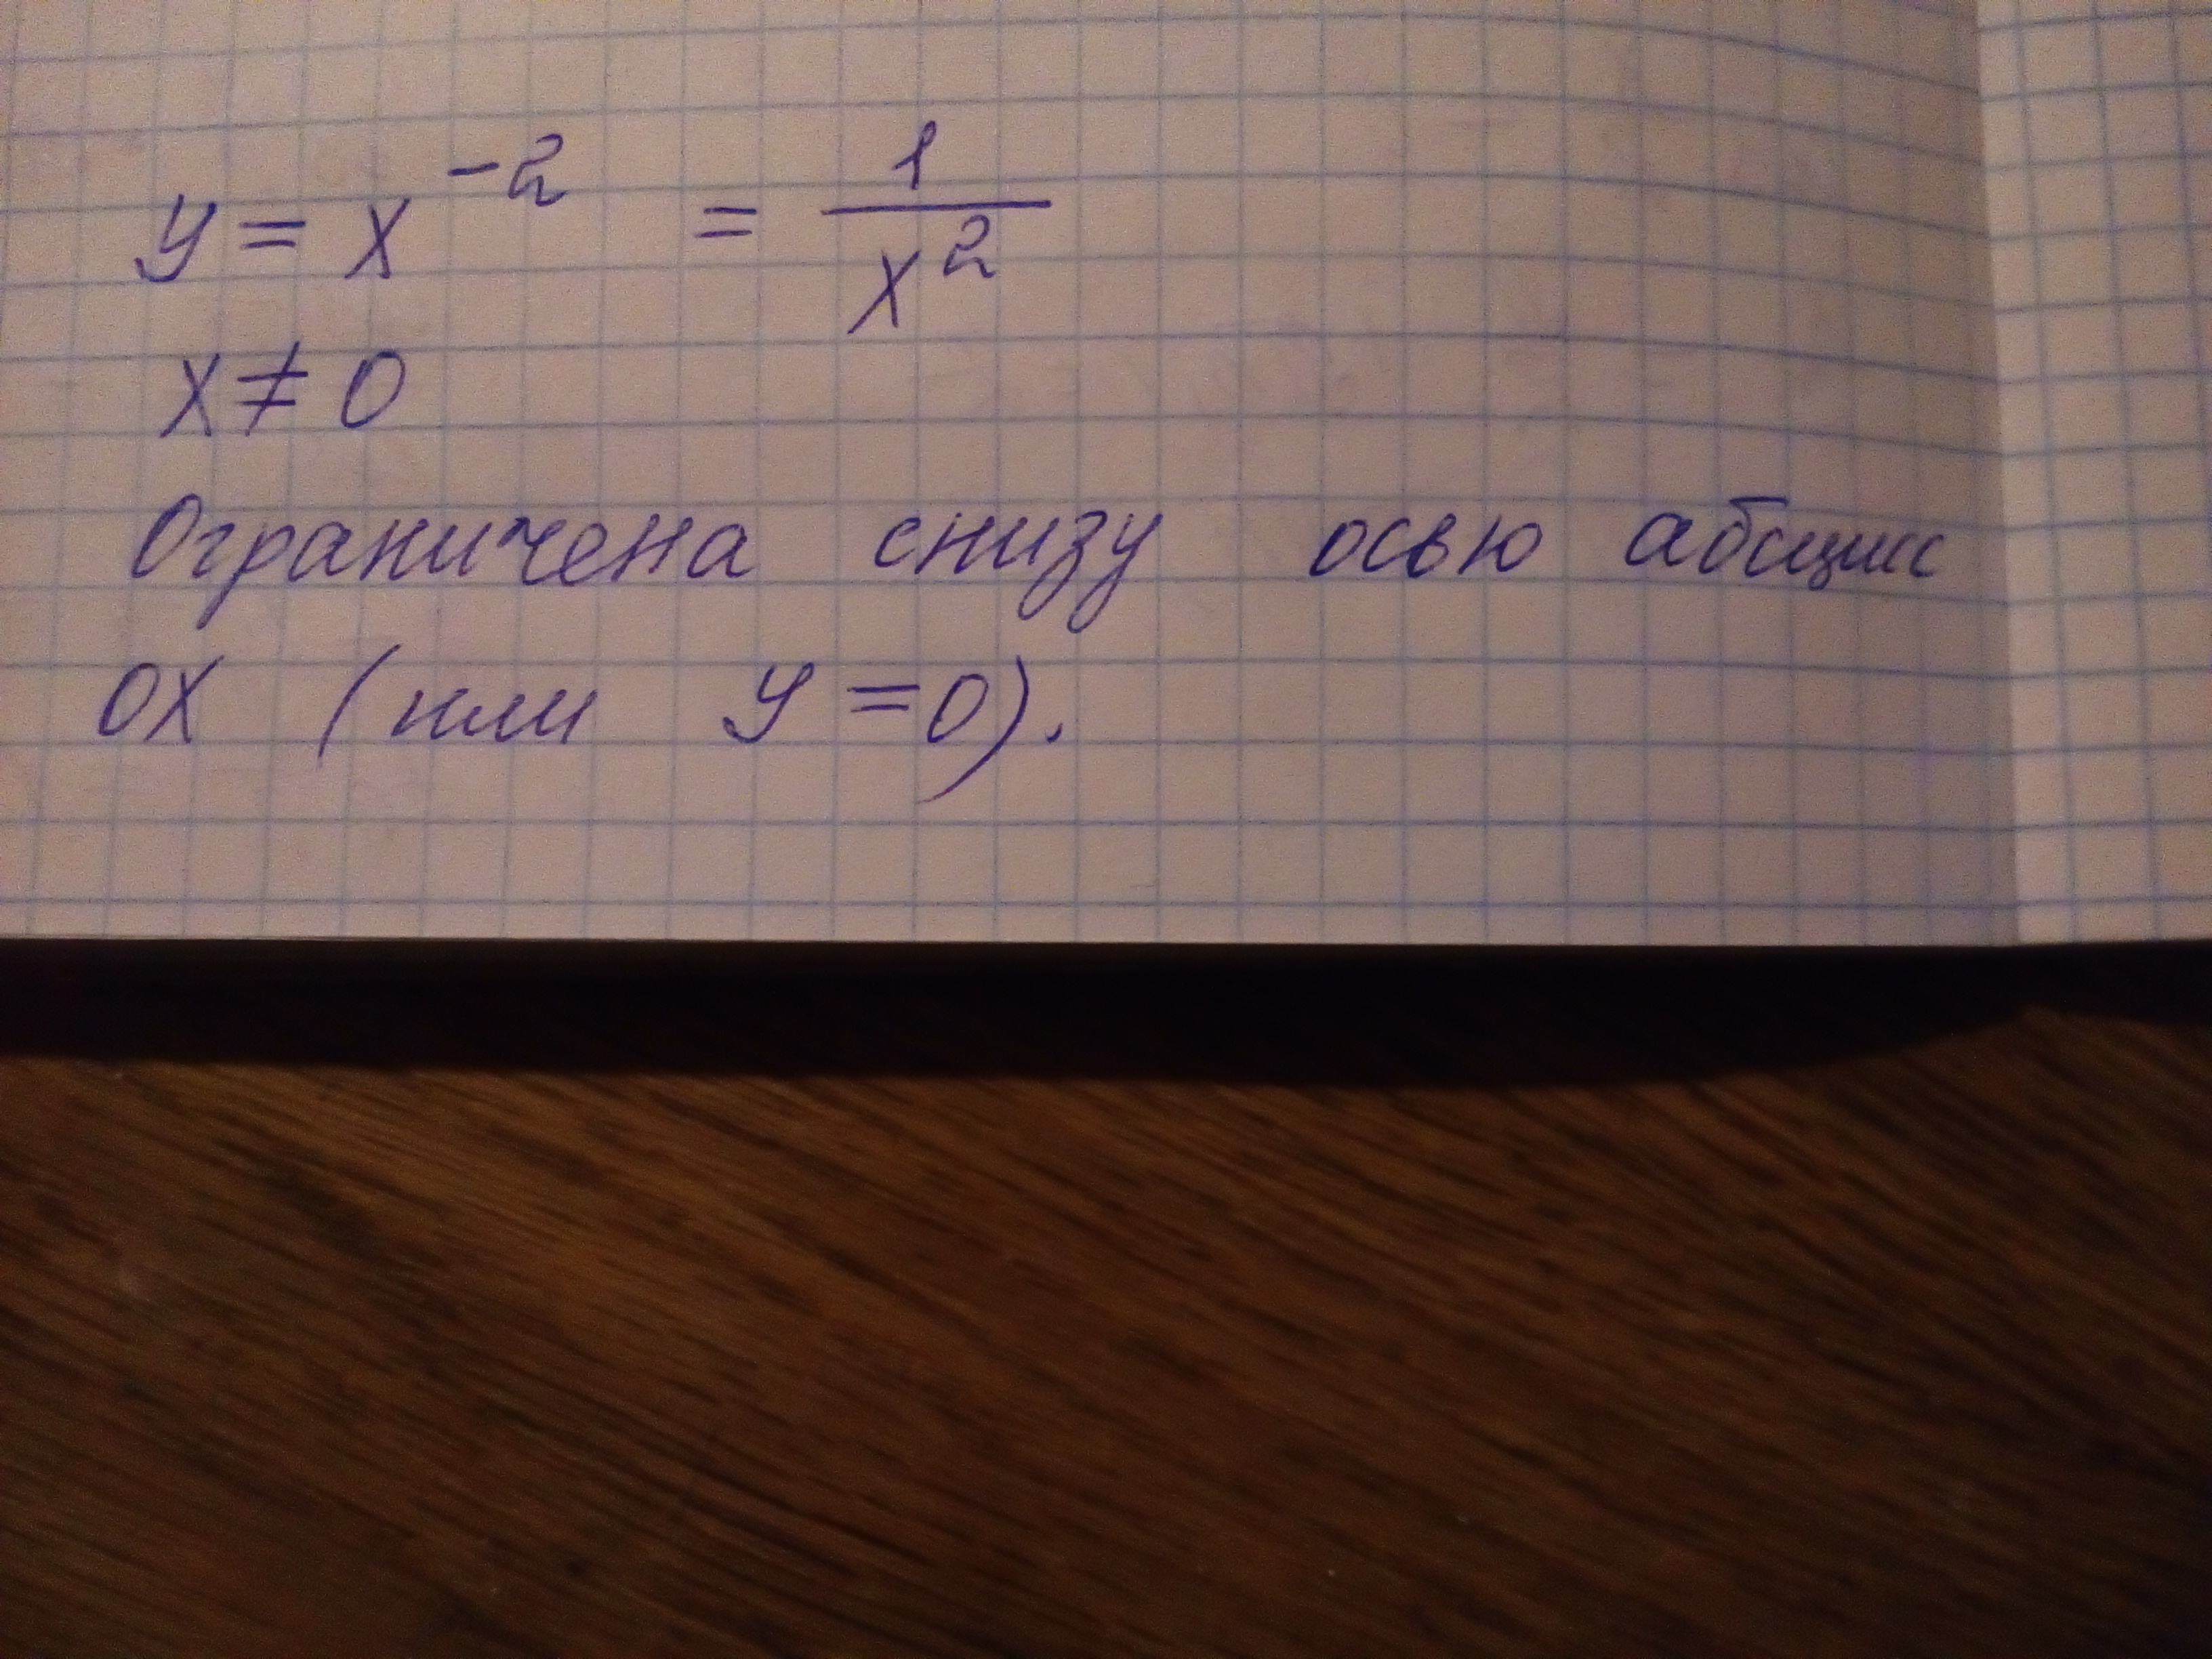 y = x^-2 = 1/x^2
x ≠ 0
Ограничена снизу осью абсцисс
OX (или y = 0).